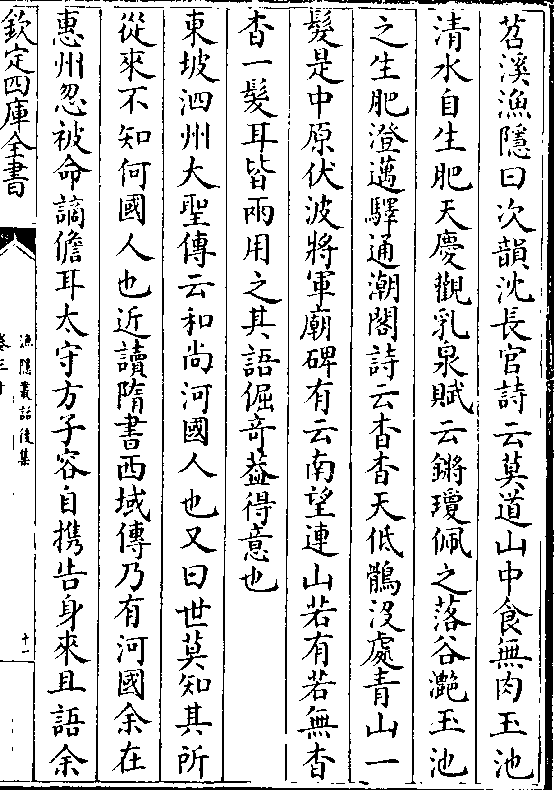 苕溪漁隱曰次韻沈長官詩云莫道山中食無肉玉池
清水自生肥天慶觀乳泉賦云鏘瓊佩之落谷灔玉池
之生肥澄邁驛通潮閣詩云杳杳天低鶻没處青山一
髮是中原伏波將軍廟碑有云南望連山若有若無杳
杳一髮耳皆兩用之其語倔竒葢得意也
東坡泗州大聖傳云和尚河國人也又曰世莫知其所
從來不知何國人也近讀隋書西域傳乃有河國余在
惠州忽被命謫儋耳太守方子容自携告身來且語余
欽定四庫全書
漁隱叢話後集
卷三十
十一